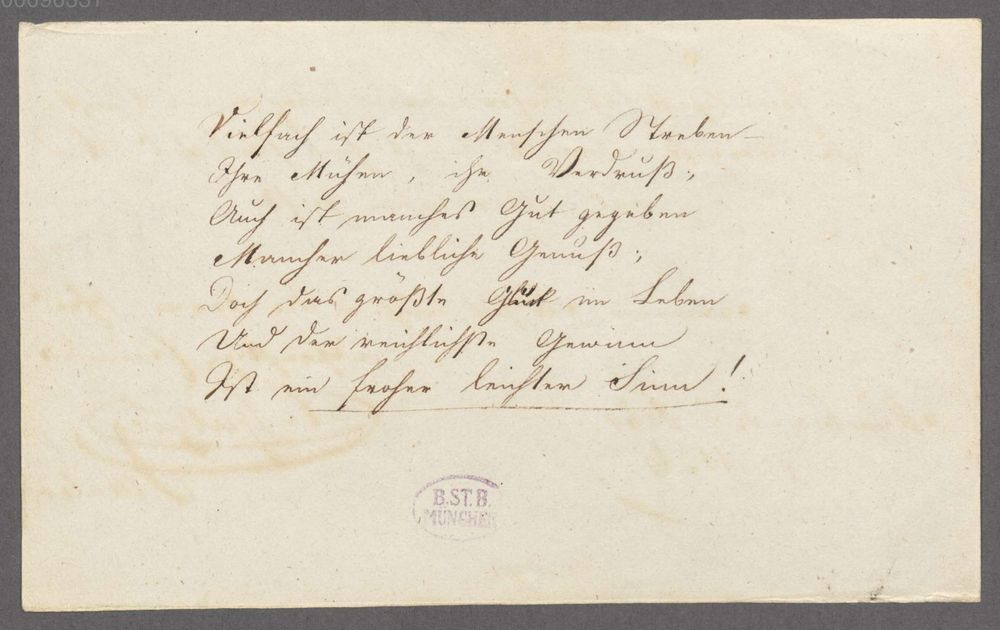 Vielfach ist der Menschen Streben
Ihre Mühen, ihr Verdruß;
Auch ist manches Gut gegeben
Mancher liebliche Genuß;
Doch das größte Glück im Leben
Und der reichlichste Gewinn
Ist ein froher leichter Sinn!
B.ST.B.
MÜNCHEN